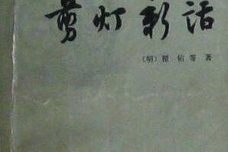 剪灯新话
（明）瞿佑等著